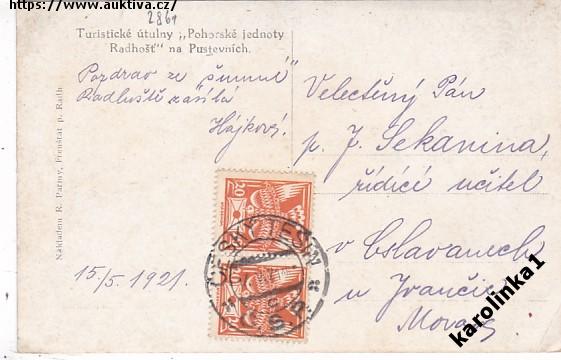 https://www.auktiva.cz/
2861
Turistické útulny „Pohorské jednoty
Radhošť" na Pustevních.
Pozdrav ze šumné
Radhoště zasílá
Hájkovi.
Velectěný Pán
p. J. Sekanina,
řídící učitel
v Oslavanech
u Ivančic
Morava
15/5. 1921.
Nákladem R. Parmy, Frenštát p. Radh.
20
ČESKÝ TĚŠÍN
karolinka1